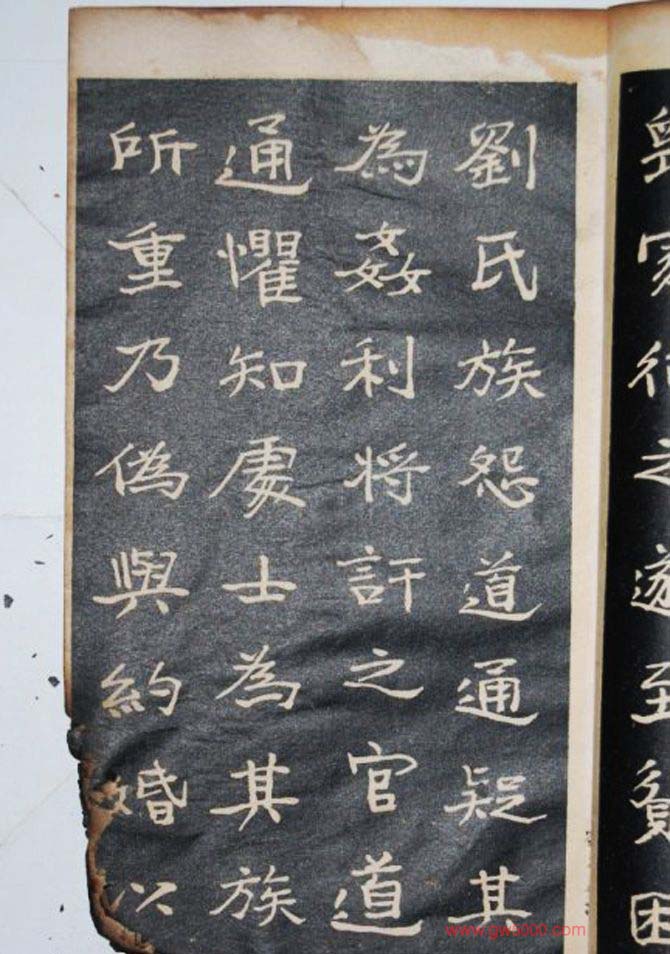 之至困
劉氏族怨道通疑其
為姦利將訐之官道
通懼知處士為其族
所重乃偽與約婚以